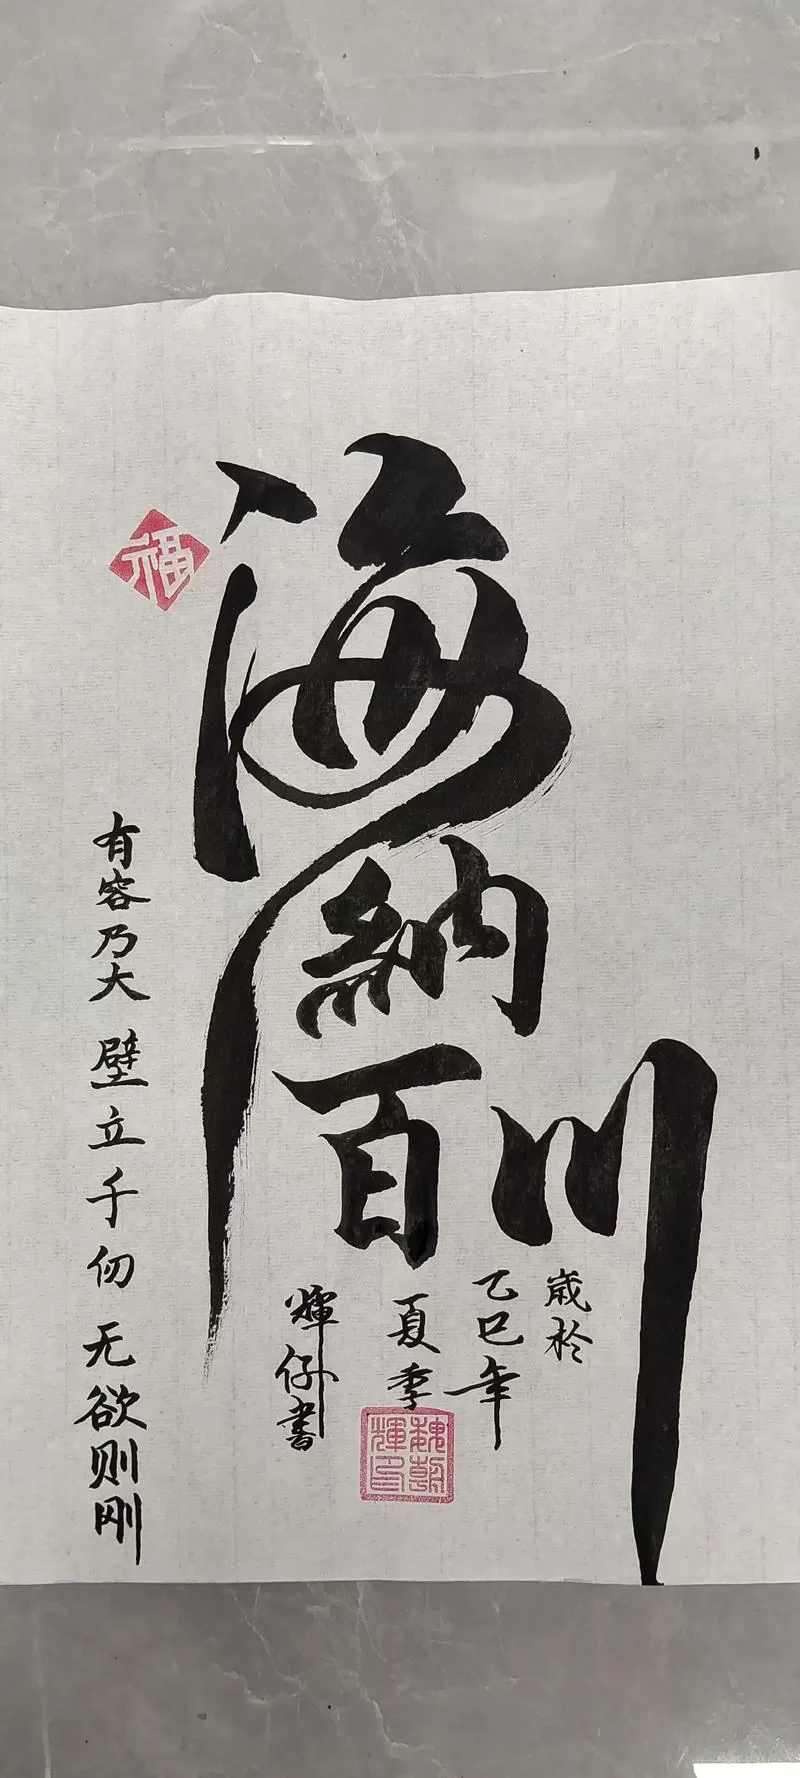 海納百川
歲於
乙巳年
夏季
輝仔書
有容乃大 壁立千仞 无欲则刚
福
魏朝輝印